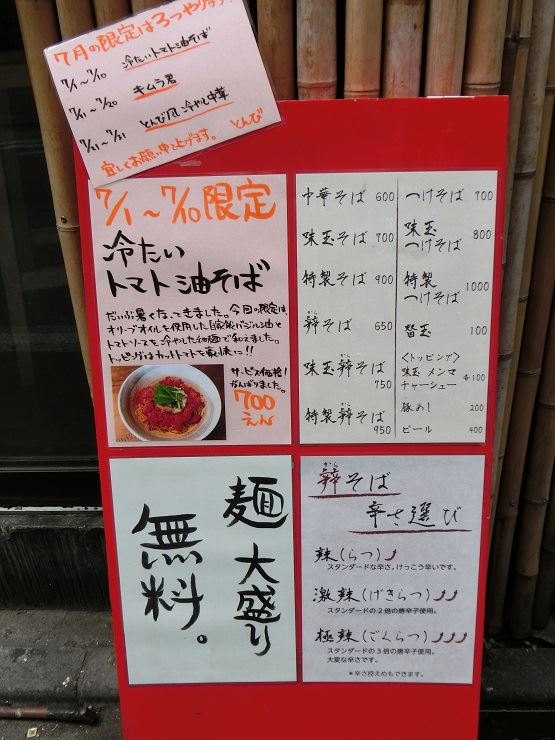 7月の限定は3つやります!
7/1〜7/10 冷たいトマト油そば
7/11〜7/20 キムラ君
7/21〜7/31 とんび風冷やし中華
宜しくお願い申し上げます。 とんび
7/1〜7/10限定
冷たい
トマト油そば
だいぶ暑くなってきました。今回の限定は、
オリーブオイルを使用した自家製バジル油と
トマトソースを冷やした細麺で和えました。
トッピングはカットトマトで爽快に!!
サービス価格!
がんばりました。
700
えん
中華そば 600
味玉そば 700
特製そば 900
から
辛辛そば 650
から
味玉辛辛そば
750
から
特製辛辛そば
950
つけそば 700
味玉
つけそば 800
特製
つけそば 1000
替玉 100
<トッピング>
味玉 メンマ
チャーシュー 各100
豚めし 200
ビール 400
麺大盛り
無料。
から
辛辛そば
辛さ選び
辣(らつ)
スタンダードな辛さ。けっこう辛いです。
激辣(げきらつ)
スタンダードの2倍の唐辛子使用。
極辣(ごくらつ)
スタンダードの3倍の唐辛子使用。
大変な辛さです。
*辛さ控えめもできます。